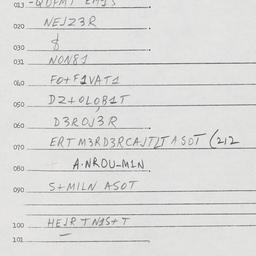 013
020 NEJZ3R
030 $
031 NON81
040 FO+F1VAT1
050 DZ+OLOB1T
060 D3ROJ3R
070 ERT M3RD3RCAJTJT ASOT (212
080 A·NROU-M1N
090 S+MILN ASOT
100 HEJR TN1S+T
101